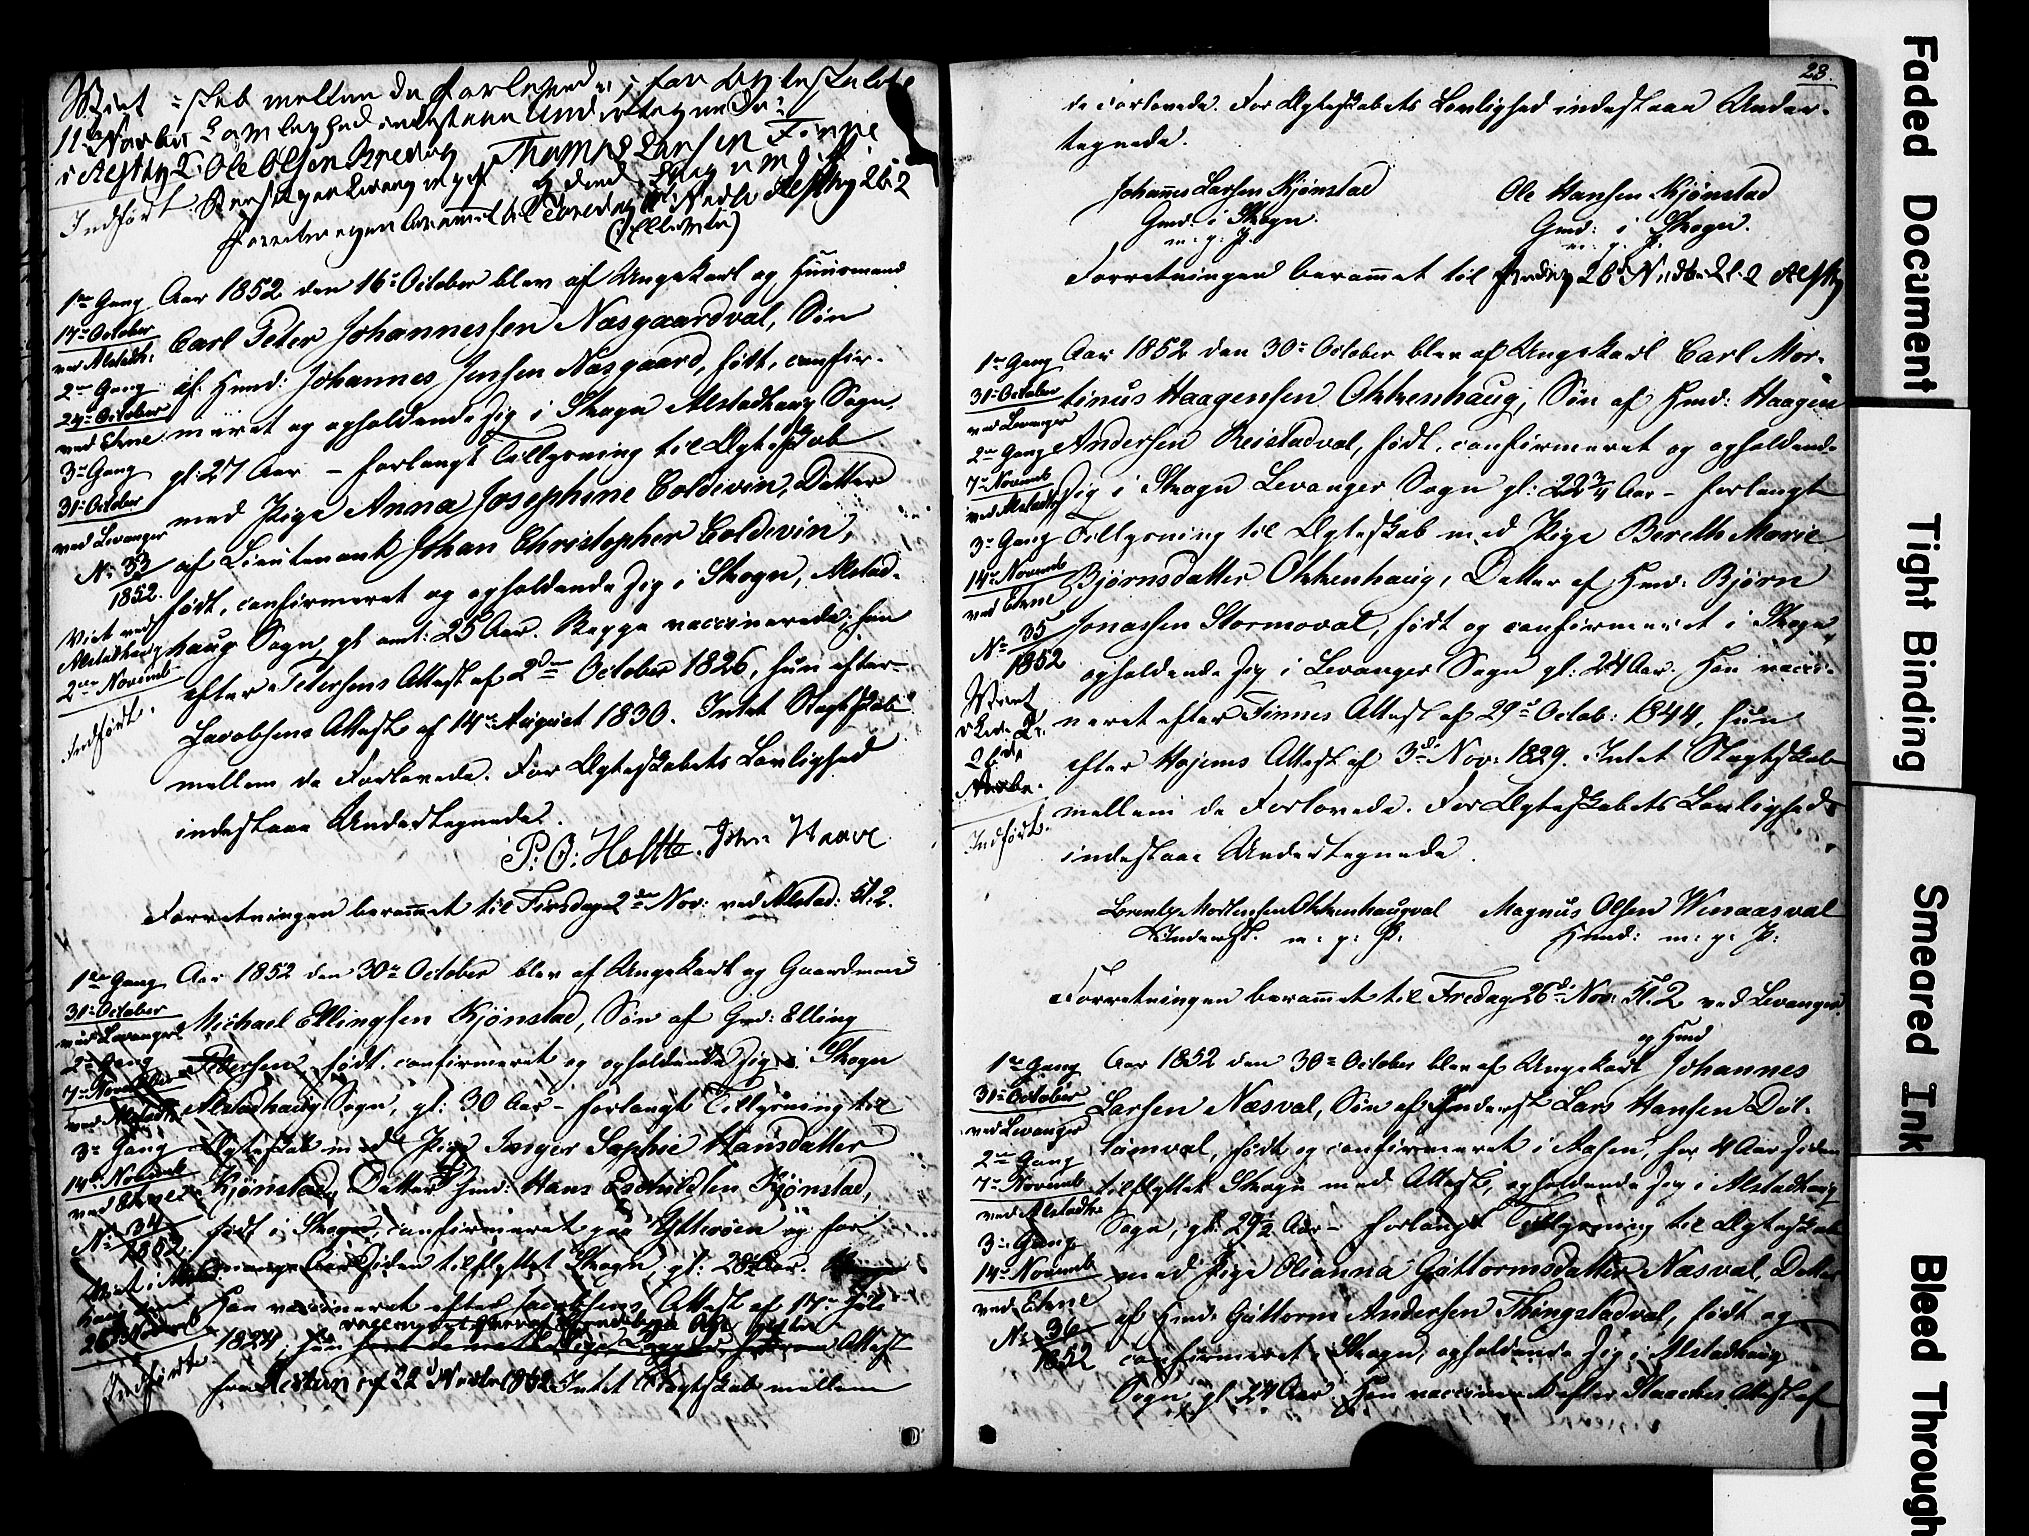 Viet
11te Novbr
=skab mellem de Forlovede, for Ægteskabets
Lovlighed indestaae Undertegnede:
Thomas Larsen Finne
Indført
Forretningen berammet til Torsdag
1ste Gang Aar 1852 den 16de October blev af Ungekarl og Huusmand
17de October
ved Alstadh:
Carl Peter Johannessen Næsgaardval, Søn
2den Gang af Hmd: Johannes Jensen Næsgaard, født, confir-
24de October
ved Ekne meret og opholdende sig i Skogn Alstadhaug Sogn,
3die Gang gl: 27 Aar - forlangt Tillysning til Ægteskab
31te October
ved Levanger med Pige Anna Josephine Coldevin, Datter
No 33
1852.
af Lieutenant Johan Christopher Coldevin,
født, confirmeret og opholdende sig i Skogn, Alstad-
Viet ved
Alstadhaug
2den Novemb
haug Sogn, gl omt: 25 Aar. Begge vaccinerede, han
efter Petersens Attest af 2den October 1826, hun efter
Indført.
Jacobsens Attest af 14de August 1830. Intet Slægtskab
mellem de Forlovede. For Ægteskabets Lovlighed
indestaae Undertegnede.
P: O: Holtte.
Forretningen berammet til Tirsdag 2den Nov: ved Alstad: Kl. 2.
1ste Gang Aar 1852 den 30te October blev af Ungekarl og Gaardmand
31te October
ved Levanger
Michael Ellingsen Kjønstad, Søn af Grd: Elling
2den Gang
Petersen, født, confirmeret og opholdende sig i Skogn
Alstadhaug Sogn, gl: 30 Aar - forlangt Tillysning til
3die Gang Ægteskab med Pige Inger Sophie Hansdatter
14de Novemb
ved Ekne
Kjønstad, Datter Hmd: Hans Eschildsen Kjønstad,
No 34
1852.
født i Skogn, confirmeret paa Ytterøen og for
Aar siden tilflyttet Skogn gl: 28 Aar.
Han vaccineret efter Jacobsens Attest af 17de Juli
26de Novemb
1824, hun Attest
Indført
fra af 22de Novbr 1852 Intet Slægtskab mellem
23.
de Forlovede. For Ægteskabets Lovlighed indestaae Under-
tegnede.
Johannes Larsen Kjønstad Ole Hansen Kjønstad
Gmd: i Skogn. Gmd: i Skogn.
m: g: P. m: g: P.
Forretningen berammet til Fredag 26de Novbr Kl. 2 Alsthg
1ste Gang Aar 1852 den 30te October blev af Ungekarl Carl Mor-
31te October
ved Levanger
tinus Haagensen Okkenhaug, Søn af Hmd: Haagen
2den Gang Andersen Reistadval, født, confirmeret og opholdende
7de Novemb
ved Alstadh:
sig i Skogn Levanger Sogn gl: 22 3/4 Aar - forlangt
3die Gang Tillysning til Ægteskab med Pige Bereth Marie
14de Novemb
ved Ekne
Bjørnsdatter Okkenhaug, Datter af Hmd: Bjørn
No 35
1852
Jonassen Stormoval, født og confirmeret i Skogn,
opholdende sig i Levanger Sogn gl: 24 Aar. Han vacci-
Viet
neret efter Finnes Attest af 29de Octob: 1844, hun
26de
Novbr.
efter Højems Attest af 3die Nov: 1829. Intet Slægtskab
mellem de Forlovede. For Ægteskabets Lovlighed
Indført.
indestaae Undertegnede.
Lorentz Mortensen Okkenhaugval Magnus Olsen Winaasval
Inderst. m: g: P: Hmd: m: g: P:
Forretningen berammet til Fredag 26de Nov: Kl. 2 ved Levanger.
og Hmd
1ste Gang Aar 1852 den 30te October blev af Ungekarl Johannes
31te October
ved Levanger
Larsen Næsval, Søn af Inderst Lars Hansen Døl-
2den Gang født og confirmeret i Aasen, for 4 Aar siden
7de Novemb
ved Alstadh:
tilflyttet Skogn med Attest, opholdende sig i Alstadhaug
Sogn, gl: 29 1/2 Aar - forlangt Tillysning til Ægteskab
3die Gang
14de Novemb
ved Ekne
med Pige Olianna Guttormsdatter Næsval, Datter
af Hmd: Guttorm Andersen Thingstadval, født og
No 36
1852
confirmeret i Skogn, opholdende sig i Alstadhaug
Sogn, gl 24 Aar. Han vaccineret efter Attest af
Faded Document
Tight Binding
Smeared Ink
Bleed Through